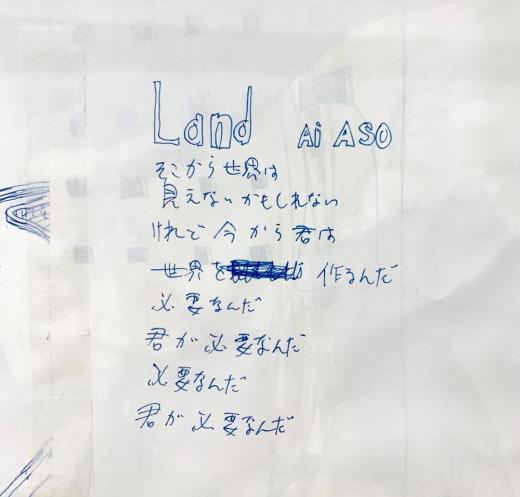 Land Ai ASO
そこから世界は
見えないかもしれない
けれど今から君は
世界を 作るんだ
必要なんだ
君が必要なんだ
必要なんだ
君が必要なんだ